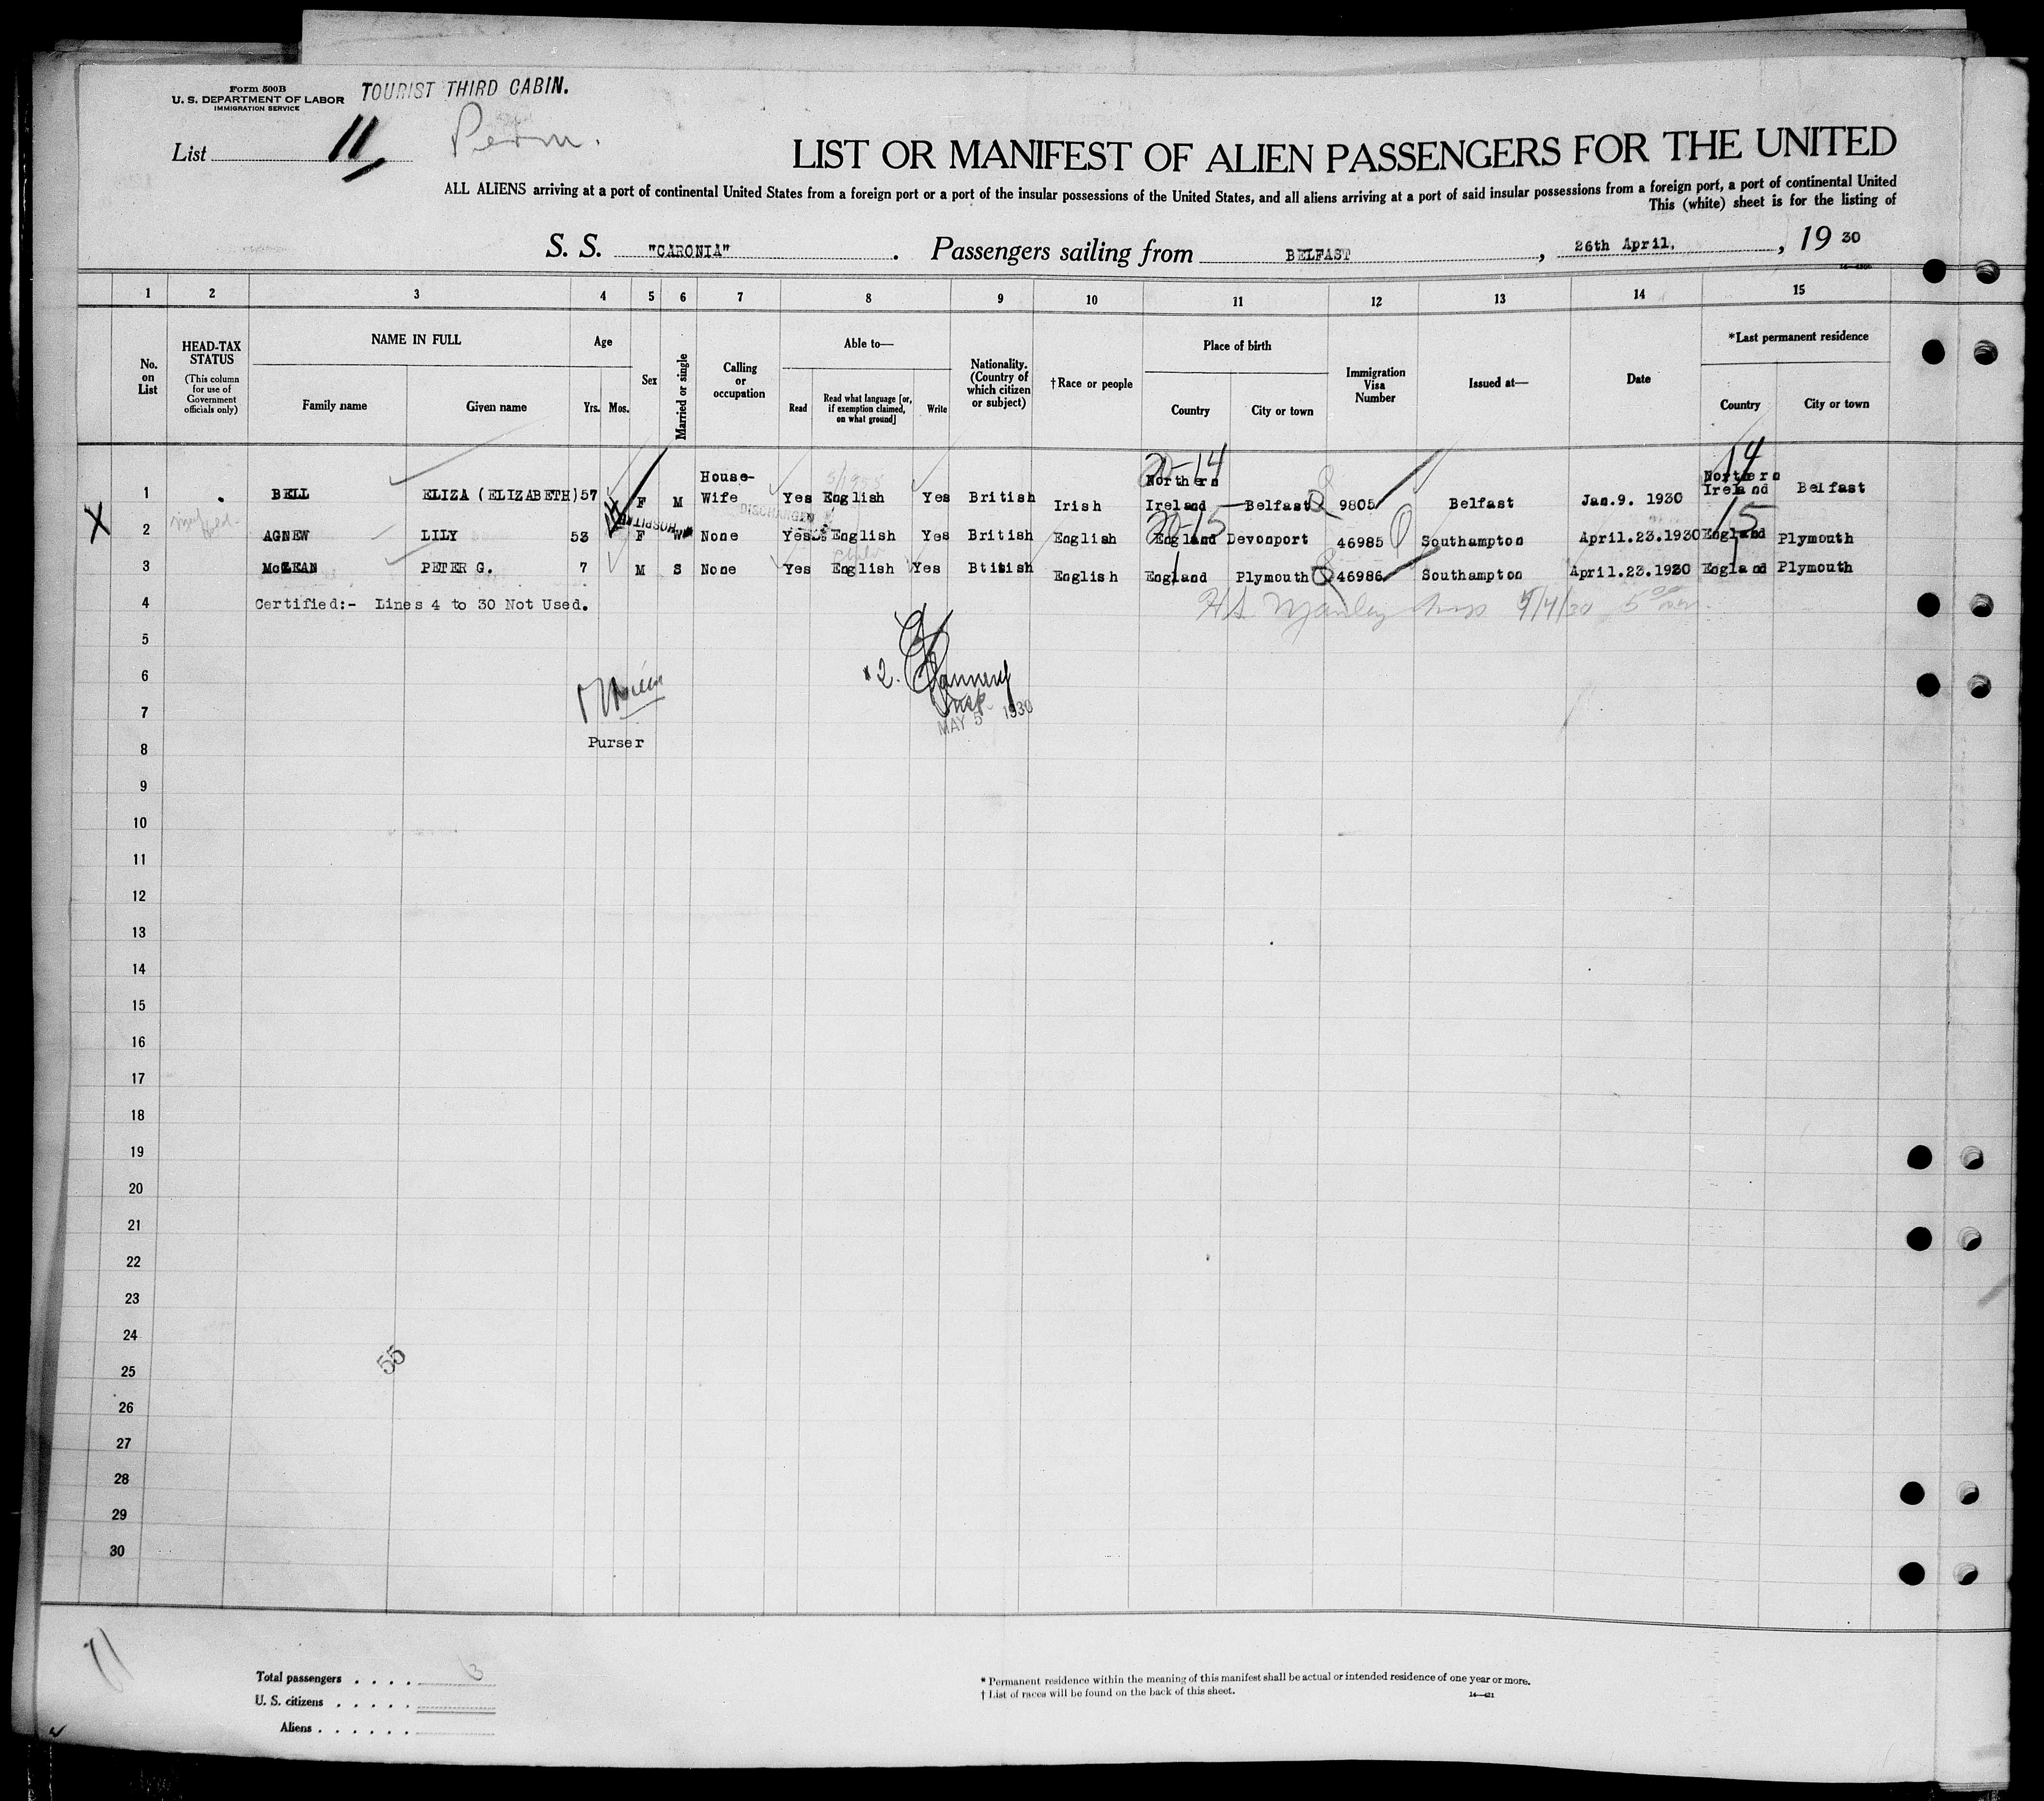 Form 500B
U. S. DEPARTMENT OF LABOR
IMMIGRATION SERVICE
TOURIST THIRD CABIN.
List 11
Perm.
LIST OR MANIFEST OF ALIEN PASSENGERS FOR THE UNITED
ALL ALIENS arriving at a port of continental United States from a foreign port or a port of the insular possessions of the United States, and all aliens arriving at a port of said insular possessions from a foreign port, a port of continental United
This (white) sheet is for the listing of
S. S. "CARONIA" . Passengers sailing from BELFAST , 26th April, , 19 30
1 2 3 4 5 6 7 8 9 10 11 12 13 14 15
No. on List
HEAD-TAX STATUS
(This column for use of Government officials only)
NAME IN FULL
Family name Given name
Age
Yrs. Mos.
Sex
Married or single
Calling or occupation
Able to—
Read
Read what language [or, if exemption claimed, on what ground]
Write
Nationality. (Country of which citizen or subject)
†Race or people
Place of birth
Country City or town
Immigration Visa Number
Issued at—
Date
*Last permanent residence
Country City or town
20-14 14
1 BELL ELIZA (ELIZABETH) 57 F M House-Wife Yes English Yes British Irish Northern Ireland Belfast 9805 Belfast Jan.9. 1930 Northern Ireland Belfast
DISCHARGED
HOSPITAL
20-15 15
X 2 AGNEW LILY 53 F W None Yes English Yes British English England Devonport 46985 Southampton April.23.1930 England Plymouth
3 McLEAN PETER G. 7 M S None Yes English Yes Btitish English England Plymouth 46986 Southampton April.23.1930 England Plymouth
4 Certified:- Lines 4 to 30 Not Used.
5
6
7
MAY 5 1930
8 Purser
9
10
11
12
13
14
15
16
17
18
19
20
21
22
23
24
55
25
26
27
28
29
30
11
Total passengers . . . . 3
U. S. citizens . . . . .
Aliens . . . . . .
* Permanent residence within the meaning of this manifest shall be actual or intended residence of one year or more.
† List of races will be found on the back of this sheet.